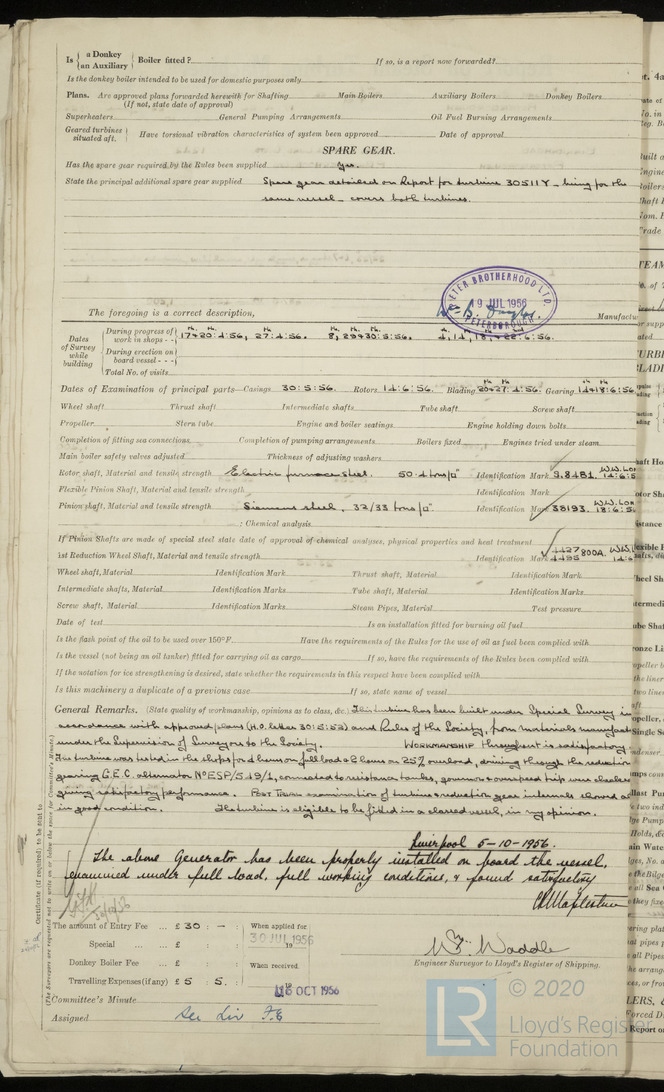 Is { a Donkey / an Auxiliary } Boiler fitted? If so, is a report now forwarded?
Is the donkey boiler intended to be used for domestic purposes only
Plans. Are approved plans forwarded herewith for Shafting Main Boilers Auxiliary Boilers Donkey Boilers
(If not, state date of approval)
Superheaters General Pumping Arrangements Oil Fuel Burning Arrangements
Geared turbines situated aft. } Have torsional vibration characteristics of system been approved Date of approval
SPARE GEAR.
Has the spare gear required by the Rules been supplied Yes.
State the principal additional spare gear supplied Spare gear detailed on Report for turbine 30511Y – being for the
same vessel – covers both turbines.
PETER BROTHERHOOD LTD.
9 JUL 1956
PETERBOROUGH
The foregoing is a correct description, Manufactu
Dates of Survey while building
During progress of work in shops - - 17+20:4:56, 27:4:56. 8, 29+30:5:56. 4, 14, 18, +22:6:56.
During erection on board vessel - - -
Total No. of visits
Dates of Examination of principal parts—Casings 30:5:56. Rotors 14:6:56. Blading 20+27:4:56. Gearing 14+18:6:56
Wheel shaft Thrust shaft Intermediate shafts Tube shaft Screw shaft
Propeller Stern tube Engine and boiler seatings Engine holding down bolts
Completion of fitting sea connections Completion of pumping arrangements Boilers fixed Engines tried under steam
Main boiler safety valves adjusted Thickness of adjusting washers
Rotor shaft, Material and tensile strength Electric furnace steel. 50.4 tons/□" Identification Mark S.8481. W.W. Lon 14:6:5
Flexible Pinion Shaft, Material and tensile strength Identification Mark
Pinion shaft, Material and tensile strength Siemens steel, 32/33 tons/□" Identification Mark 38193. W.W. Lon 18:6:5
: Chemical analysis
If Pinion Shafts are made of special steel state date of approval of chemical analyses, physical properties and heat treatment
1st Reduction Wheel Shaft, Material and tensile strength Identification Mark
Wheel shaft, Material Identification Mark Thrust shaft, Material Identification Mark
Intermediate shafts, Material Identification Marks Tube shaft, Material Identification Marks
Screw shaft, Material Identification Marks Steam Pipes, Material Test pressure
Date of test Is an installation fitted for burning oil fuel
Is the flash point of the oil to be used over 150°F. Have the requirements of the Rules for the use of oil as fuel been complied with
Is the vessel (not being an oil tanker) fitted for carrying oil as cargo If so, have the requirements of the Rules been complied with
If the notation for ice strengthening is desired, state whether the requirements in this respect have been complied with
Is this machinery a duplicate of a previous case If so, state name of vessel
General Remarks. (State quality of workmanship, opinions as to class, &c.) This turbine has been built under Special Survey in
accordance with approved plans (H.O. letter 30:5:52) and Rules of the Society, from materials manufact
under the Supervision of Surveyors to the Society. WORKMANSHIP throughout is satisfactory.
The turbine was tested in the shops for 4 hours on full load + 2 hours on 25% overload, driving through the reduction
gearing G.E.C. alternator connected to resistance tanks, governor + overspeed trip were checked
giving satisfactory performance. POST TRIAL examination of turbine + reduction gear internals showed all
in good condition. The turbine is eligible to be fitted in a classed vessel, in my opinion.
Liverpool 5-10-1956.
The above Generator has been properly installed on board the vessel,
examined under full load, full working conditions, & found satisfactory
Certificate (if required) to be sent to
(The Surveyors are requested not to write on or below the space for Committee's Minute.)
The amount of Entry Fee ... £ 30 : – : When applied for
Special ... £ : : 30 JUL 1956
Donkey Boiler Fee ... £ : : When received.
Travelling Expenses (if any) £ 5 : 5 : 19
Wm Waddle
Engineer Surveyor to Lloyd's Register of Shipping.
Committee's Minute 16 OCT 1956
Assigned See Liv F.E
LR © 2020
Lloyd's Register
Foundation